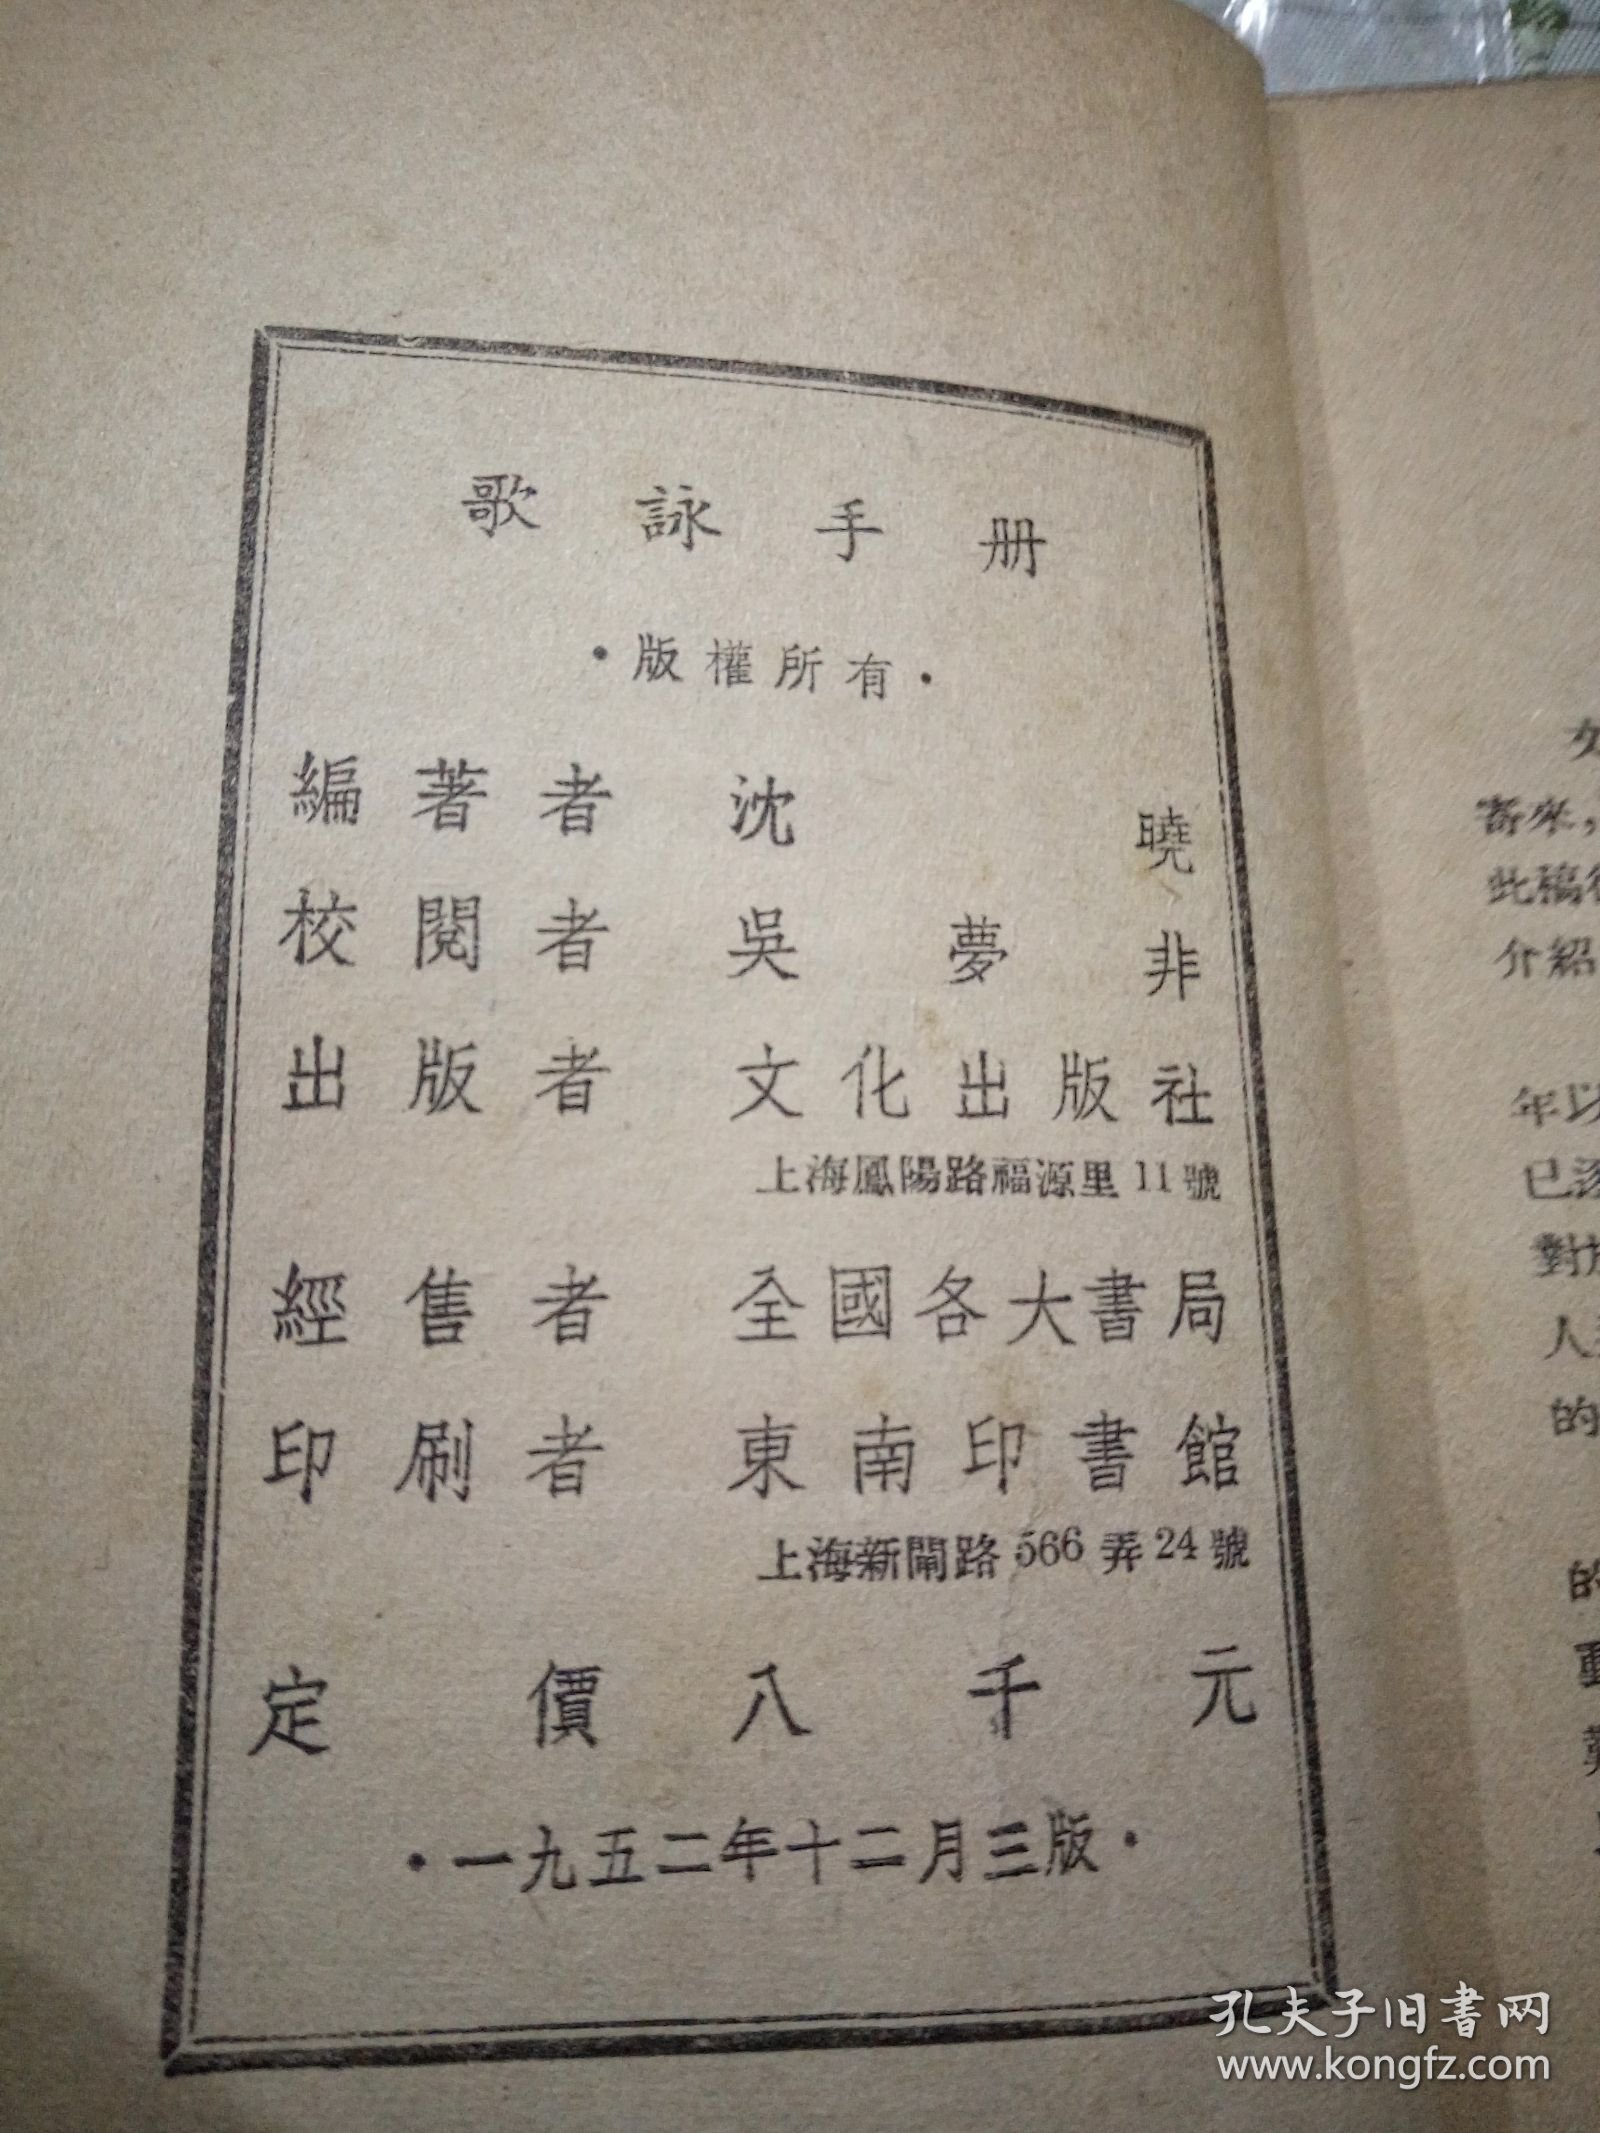 歌詠手册
·版權所有·
編著者 沈曉
校閱者 吳夢非
出版者 文化出版社
上海鳳陽路福源里11號
經售者 全國各大書局
印刷者 東南印書館
上海新閘路566弄24號
定價八千元
·一九五二年十二月三版·
寄來，
此稿
介紹
年以
已逐
對於
人
的
的
動
孔夫子旧書网
www.kongfz.com